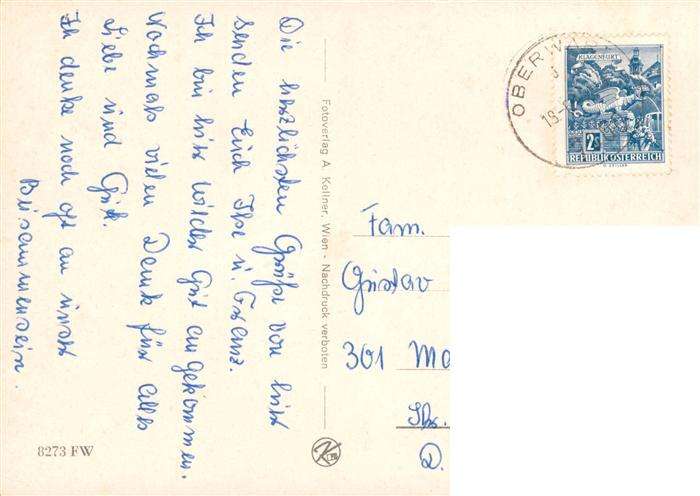 Die herzlichsten Grüße von hier
senden Euch Ihr u. Franz.
Ich bin hier wieder Gut angekommen.
Nochmals vielen Dank für alles
Liebe und Gute.
Ich denke noch oft an unser
Beisammensein.
Fotoverlag A. Kellner, Wien - Nachdruck verboten
8273 FW
OBERW
18
KLAGENFURT
2
REPUBLIK ÖSTERREICH
Fam.
Gustav
301 Ma
D.